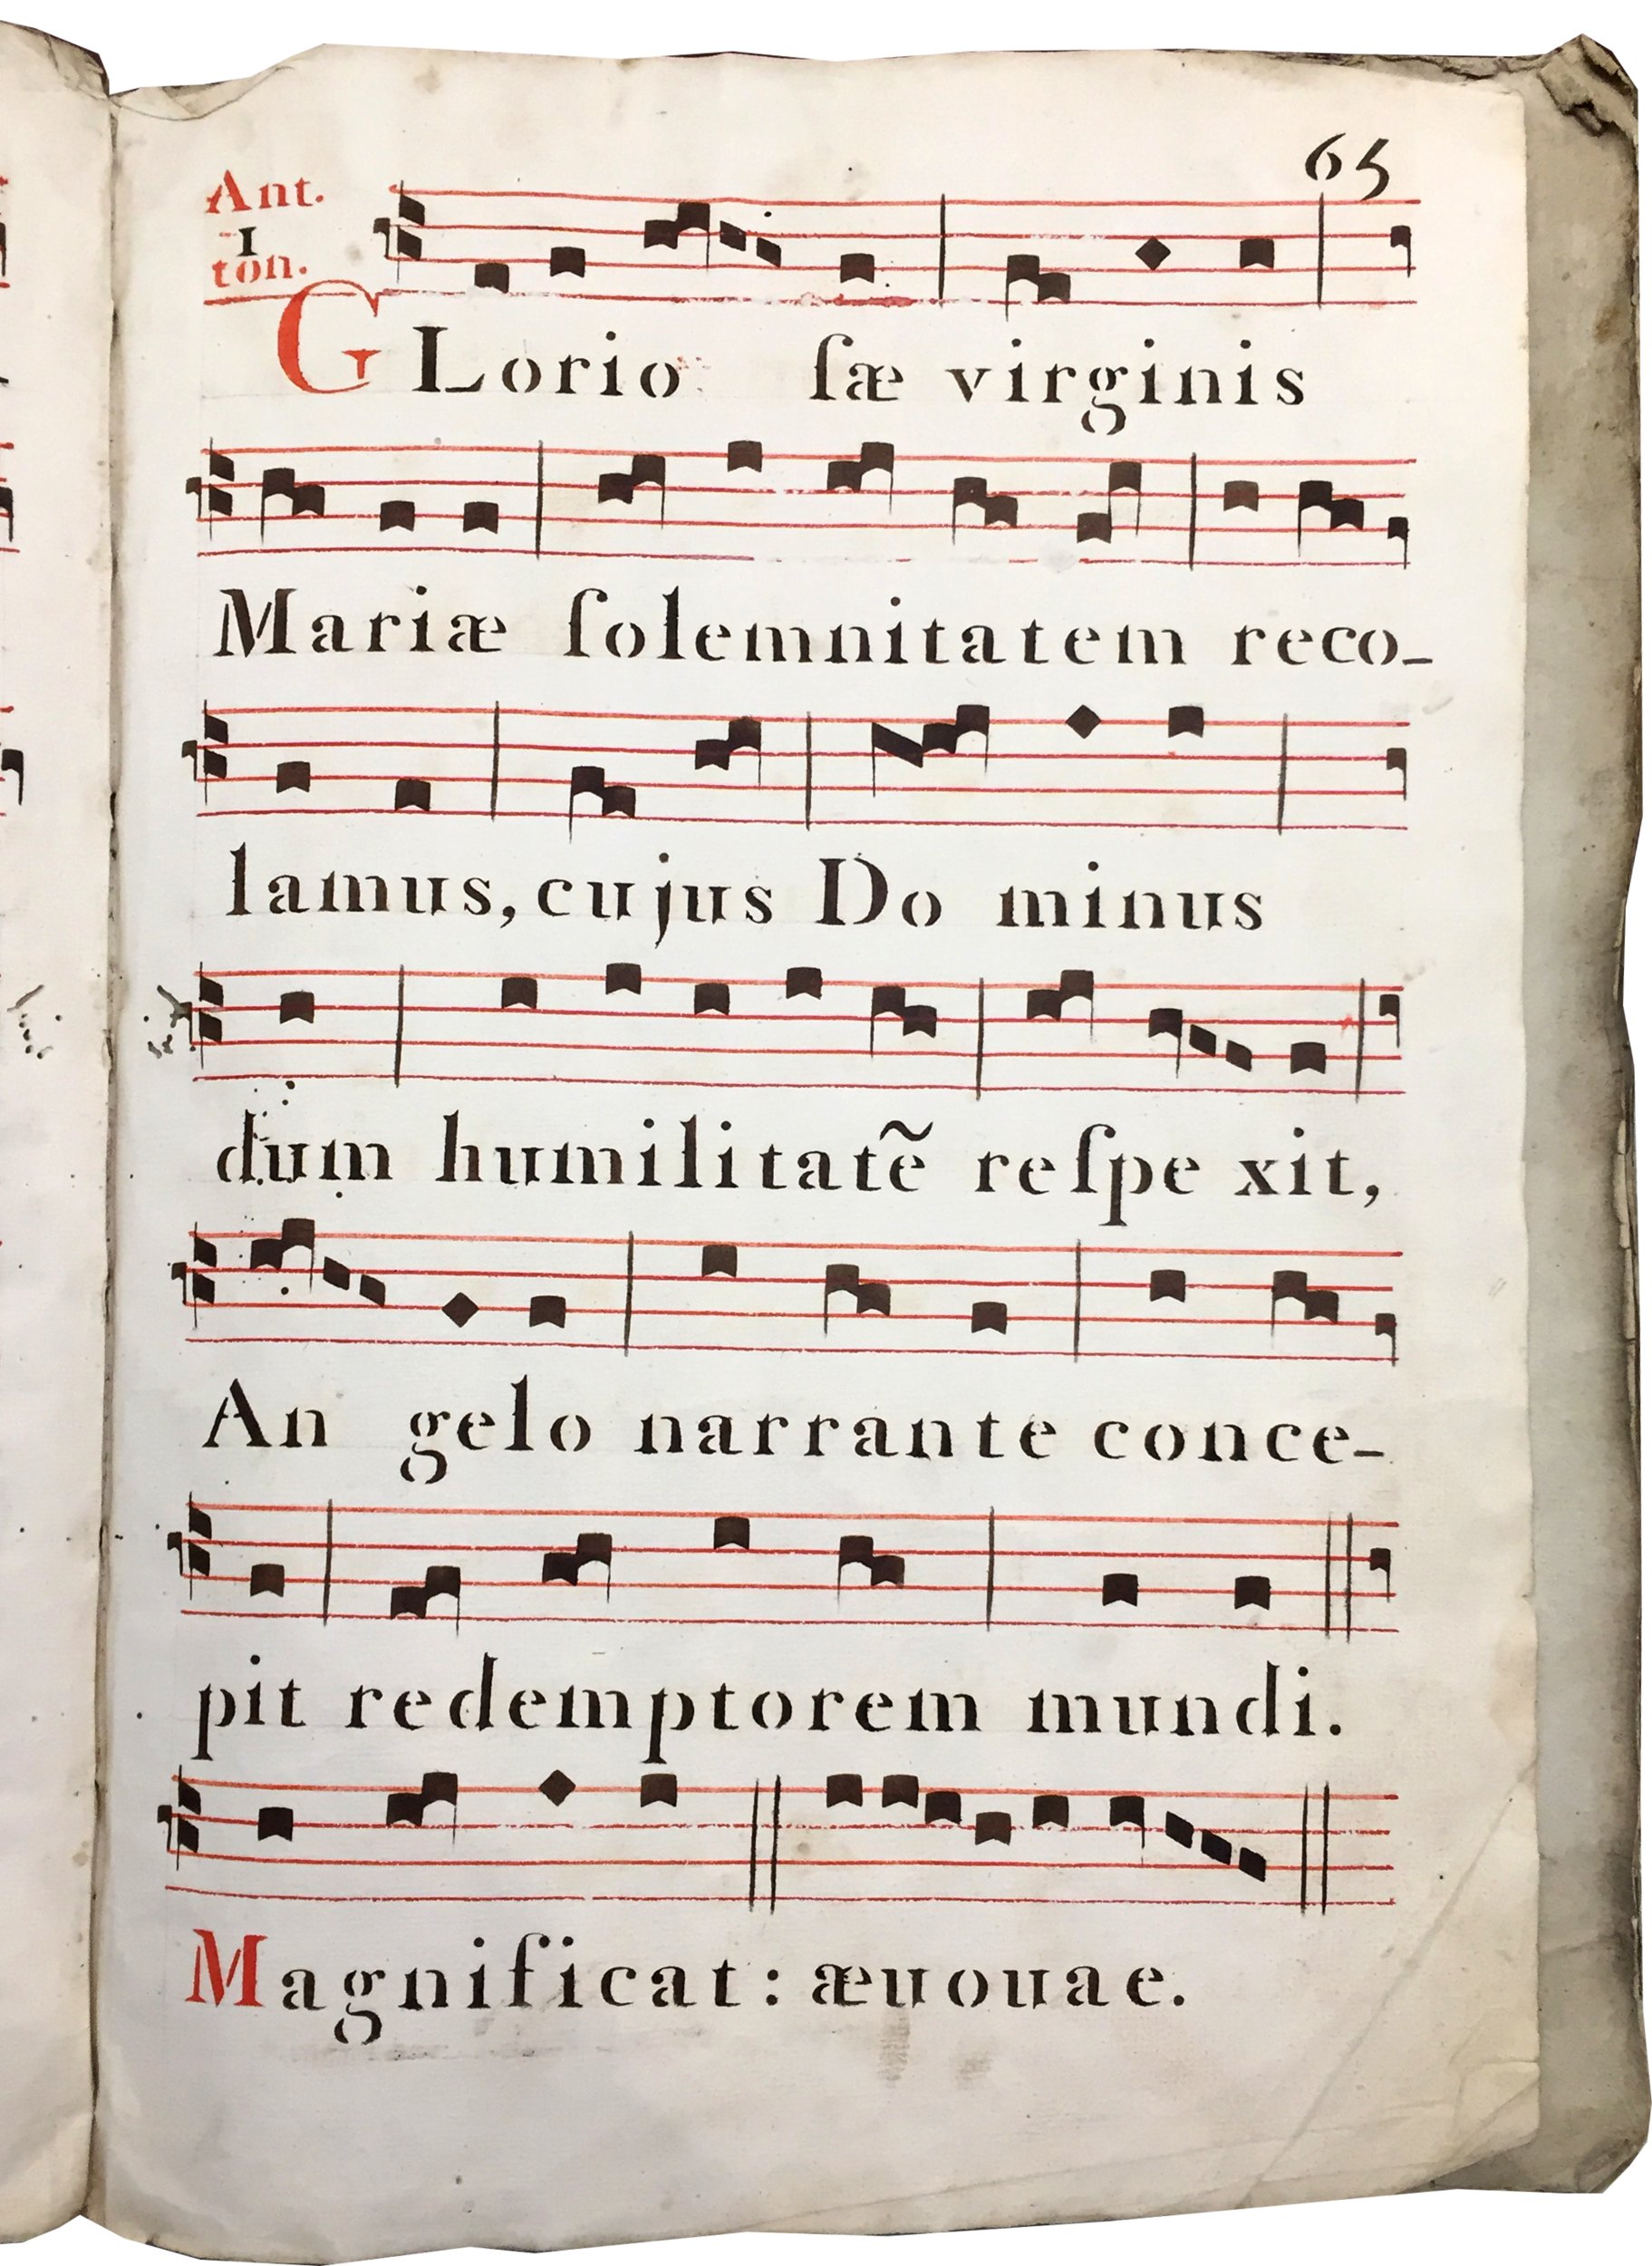 65
Ant.
1
ton.
GLorio ſæ virginis
Mariæ ſolemnitatem reco-
lamus, cujus Do minus
dum humilitatẽ reſpe xit,
An gelo narrante conce-
pit redemptorem mundi.
Magnificat: æuouae.